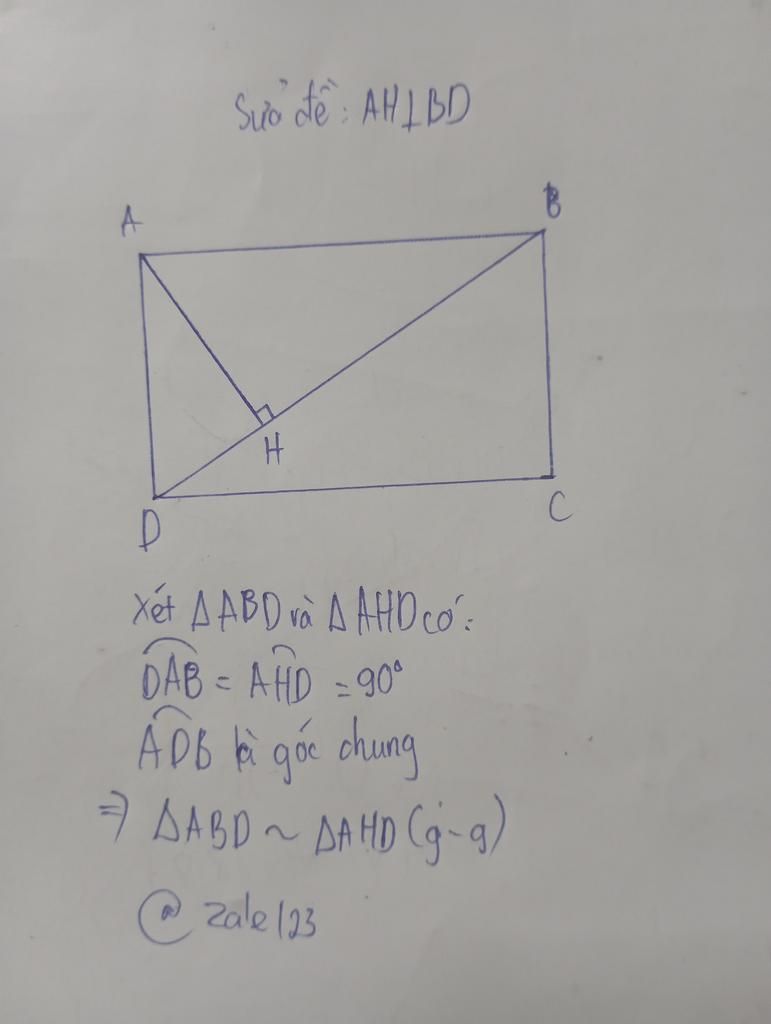 Sửa đề: AH⊥BD
A
B
H
D
C
Xét ΔABD và ΔAHD có:
DAB = AHD = 90°
ADB là góc chung
⇒ ΔABD ~ ΔAHD (g-g)
@ zale123